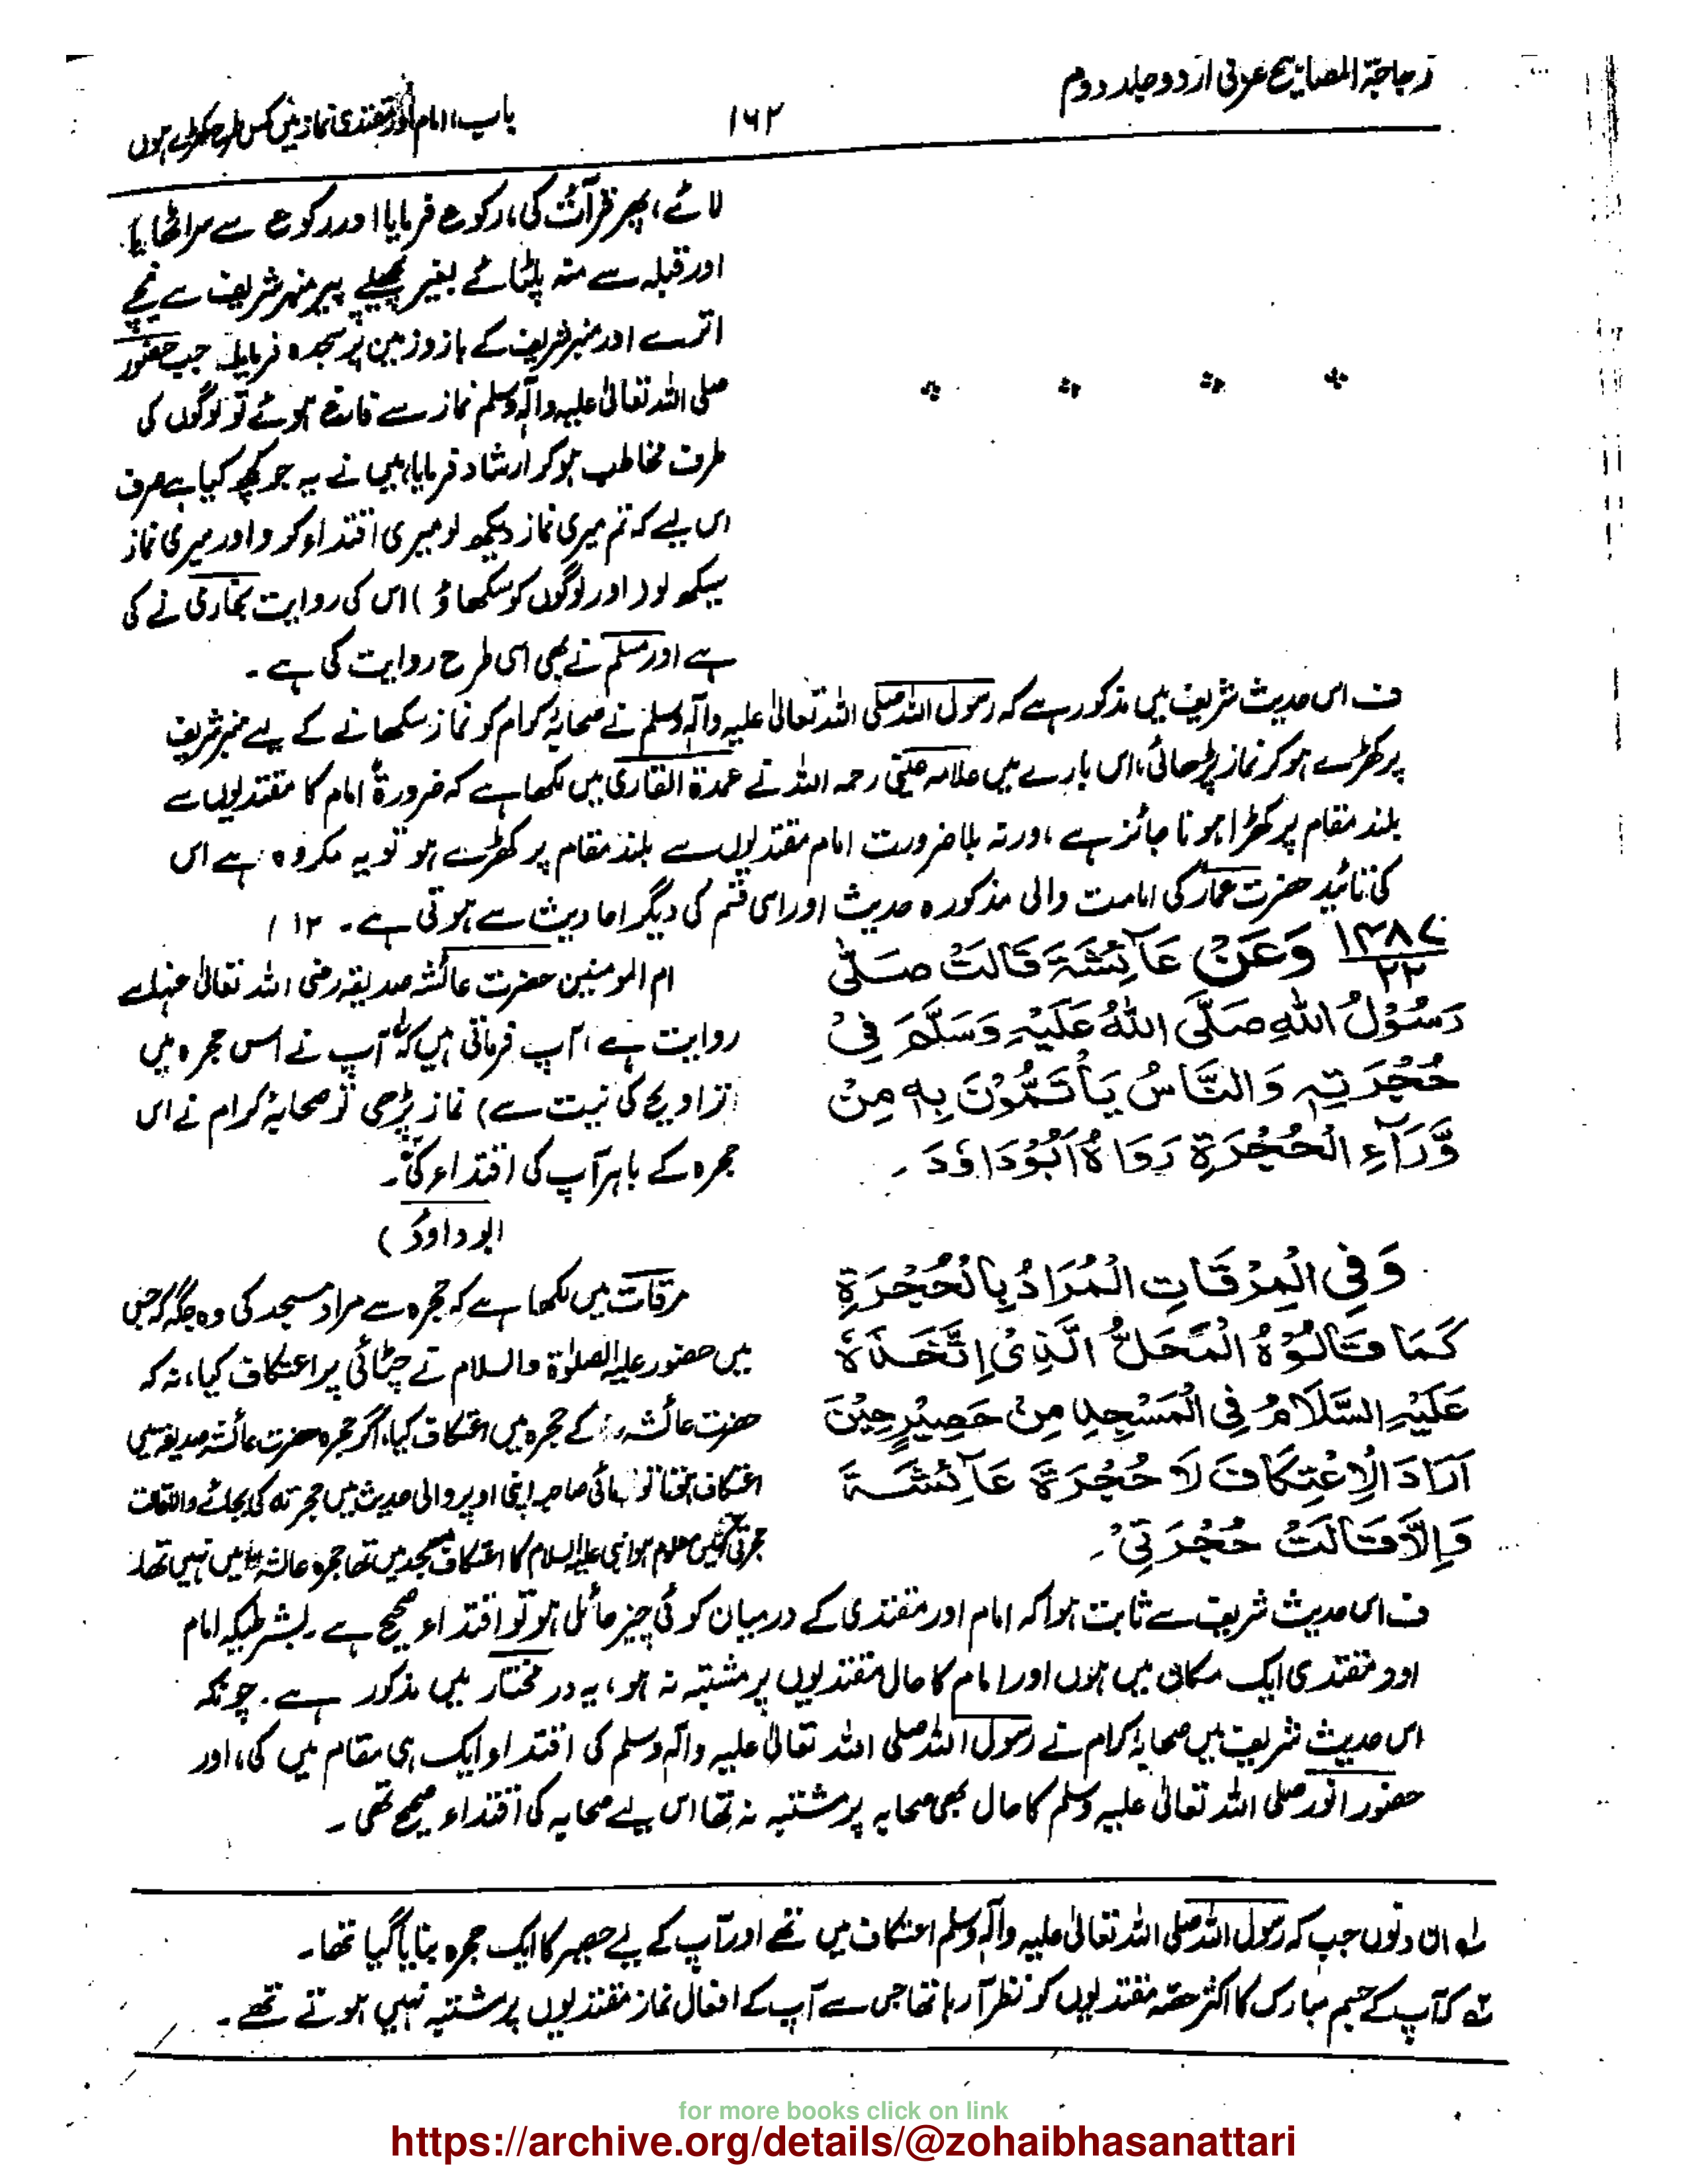 زجاجۃ المصابیح عربی اردو جلد دوم
۱۶۲
باب، امام اور مقتدی نماز میں کس طرح کھڑے ہوں
لائے، پھر قرآت کی، رکوع فرمایا اور رکوع سے سر اٹھایا
اور قبلہ سے منہ پلٹائے بغیر پچھلے پیر منبر شریف سے نیچے
اترے اور منبر شریف کے بازو زمین پر سجدہ فرمایا۔ جب حضور
صلی اللہ تعالیٰ علیہ وآلہ وسلم نماز سے فارغ ہوئے تو لوگوں کی
طرف مخاطب ہو کر ارشاد فرمایا، میں نے یہ جو کچھ کیا ہے صرف
اس لیے کہ تم میری نماز دیکھ لو میری اقتداء کرو اور میری نماز
سیکھ لو (اور لوگوں کو سکھاؤ) اس کی روایت بخاری نے کی
ہے اور مسلم نے بھی اسی طرح روایت کی ہے۔
ف اس حدیث شریف میں مذکور ہے کہ رسول اللہ صلی اللہ تعالیٰ علیہ وآلہ وسلم نے صحابۂ کرام کو نماز سکھانے کے لیے منبر شریف
پر کھڑے ہو کر نماز پڑھائی، اس بارے میں علامہ عینی رحمہ اللہ نے عمدۃ القاری میں لکھا ہے کہ ضرورۃً امام کا مقتدیوں سے
بلند مقام پر کھڑا ہونا جائز ہے، ورنہ بلا ضرورت امام مقتدیوں سے بلند مقام پر کھڑے ہو تو یہ مکروہ ہے اس
کی تائید حضرت عمار کی امامت والی مذکورہ حدیث اور اسی قسم کی دیگر احادیث سے ہوتی ہے۔ ۱۲ /
۱۳۸۷
۲۲
وَعَنْ عَآئِشَۃَ قَالَتْ صَلّٰی
رَسُوْلُ اللّٰہِ صَلَّی اللّٰہُ عَلَیْہِ وَسَلَّمَ فِیْ
حُجْرَتِہٖ وَالنَّاسُ یَأْتَمُّوْنَ بِہٖ مِنْ
وَّرَآءِ الْحُجْرَۃِ رَوَاہُ اَبُوْدَاوٗدَ۔
ام المومنین حضرت عائشہ صدیقہ رضی اللہ تعالیٰ عنہا سے
روایت ہے، آپ فرماتی ہیں کہ آپ نے اس حجرہ میں
(تراویح کی نیت سے) نماز پڑھی تو صحابۂ کرام نے اس
حجرہ کے باہر آپ کی اقتداء کی۔
(ابوداؤد)
وَفِی الْمِرْقَاتِ الْمُرَادُ بِالْحُجْرَۃِ
کَمَا قَالُوْہُ الْمَحَلُّ الَّذِیْ اِتَّخَذَہٗ
عَلَیْہِ السَّلَامُ فِی الْمَسْجِدِ مِنْ حَصِیْرٍ حِیْنَ
اَرَادَ الْاِعْتِکَافَ لَا حُجْرَۃَ عَآئِشَۃَ
وَاِلَّا قَالَتْ حُجْرَتِیْ۔
مرقات میں لکھا ہے کہ حجرہ سے مراد مسجد کی وہ جگہ کہ جس
میں حضور علیہ الصلوٰۃ والسلام نے چٹائی پر اعتکاف کیا، نہ کہ
حضرت عائشہ رض کے حجرہ میں اعتکاف کیا، اگر حجرہ حضرت عائشہ صدیقہ میں
اعتکاف ہوتا تو مائی صاحبہ اپنی اوپر والی حدیث میں حجرتہ کی بجائے
حجرتی کہتیں معلوم ہوا نبی علیہ السلام کا اعتکاف مسجد میں تھا حجرہ عائشہ میں نہیں تھا۔
ف اس حدیث شریف سے ثابت ہوا کہ امام اور مقتدی کے درمیان کوئی چیز حائل ہو تو اقتداء صحیح ہے۔ بشرطیکہ امام
اور مقتدی ایک مکان میں ہوں اور امام کا حال مقتدیوں پر مشتبہ نہ ہو، یہ در مختار میں مذکور ہے۔ چونکہ
اس حدیث شریف میں صحابۂ کرام نے رسول اللہ صلی اللہ تعالیٰ علیہ وآلہ وسلم کی اقتداء ایک ہی مقام میں کی، اور
حضور انور صلی اللہ تعالیٰ علیہ وسلم کا حال بھی صحابہ پر مشتبہ نہ تھا اس لیے صحابہ کی اقتداء صحیح تھی۔
۱؎ ان دنوں جب کہ رسول اللہ صلی اللہ تعالیٰ علیہ وآلہ وسلم اعتکاف میں تھے اور آپ کے لیے حصیر کا ایک حجرہ بنایا گیا تھا۔
۲؎ کہ آپ کے جسم مبارک کا اکثر حصہ مقتدیوں کو نظر آ رہا تھا جس سے آپ کے افعال نماز مقتدیوں پر مشتبہ نہیں ہوتے تھے۔
for more books click on link
https://archive.org/details/@zohaibhasanattari